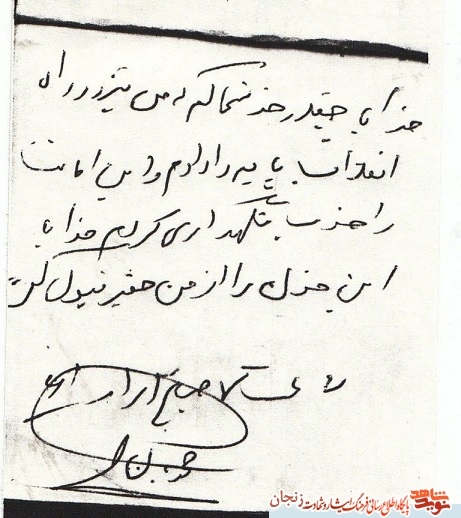 خدایا چقدر خوشحالم که من نیز در راه
انقلاب پایه دادم و این امانت
را خوب نگهداری کردم خدایا
این خون را از من حقیر قبول کن
نوید شاهد
پایگاه اطلاع رسانی فرهنگ ایثار و شهادت زنجان